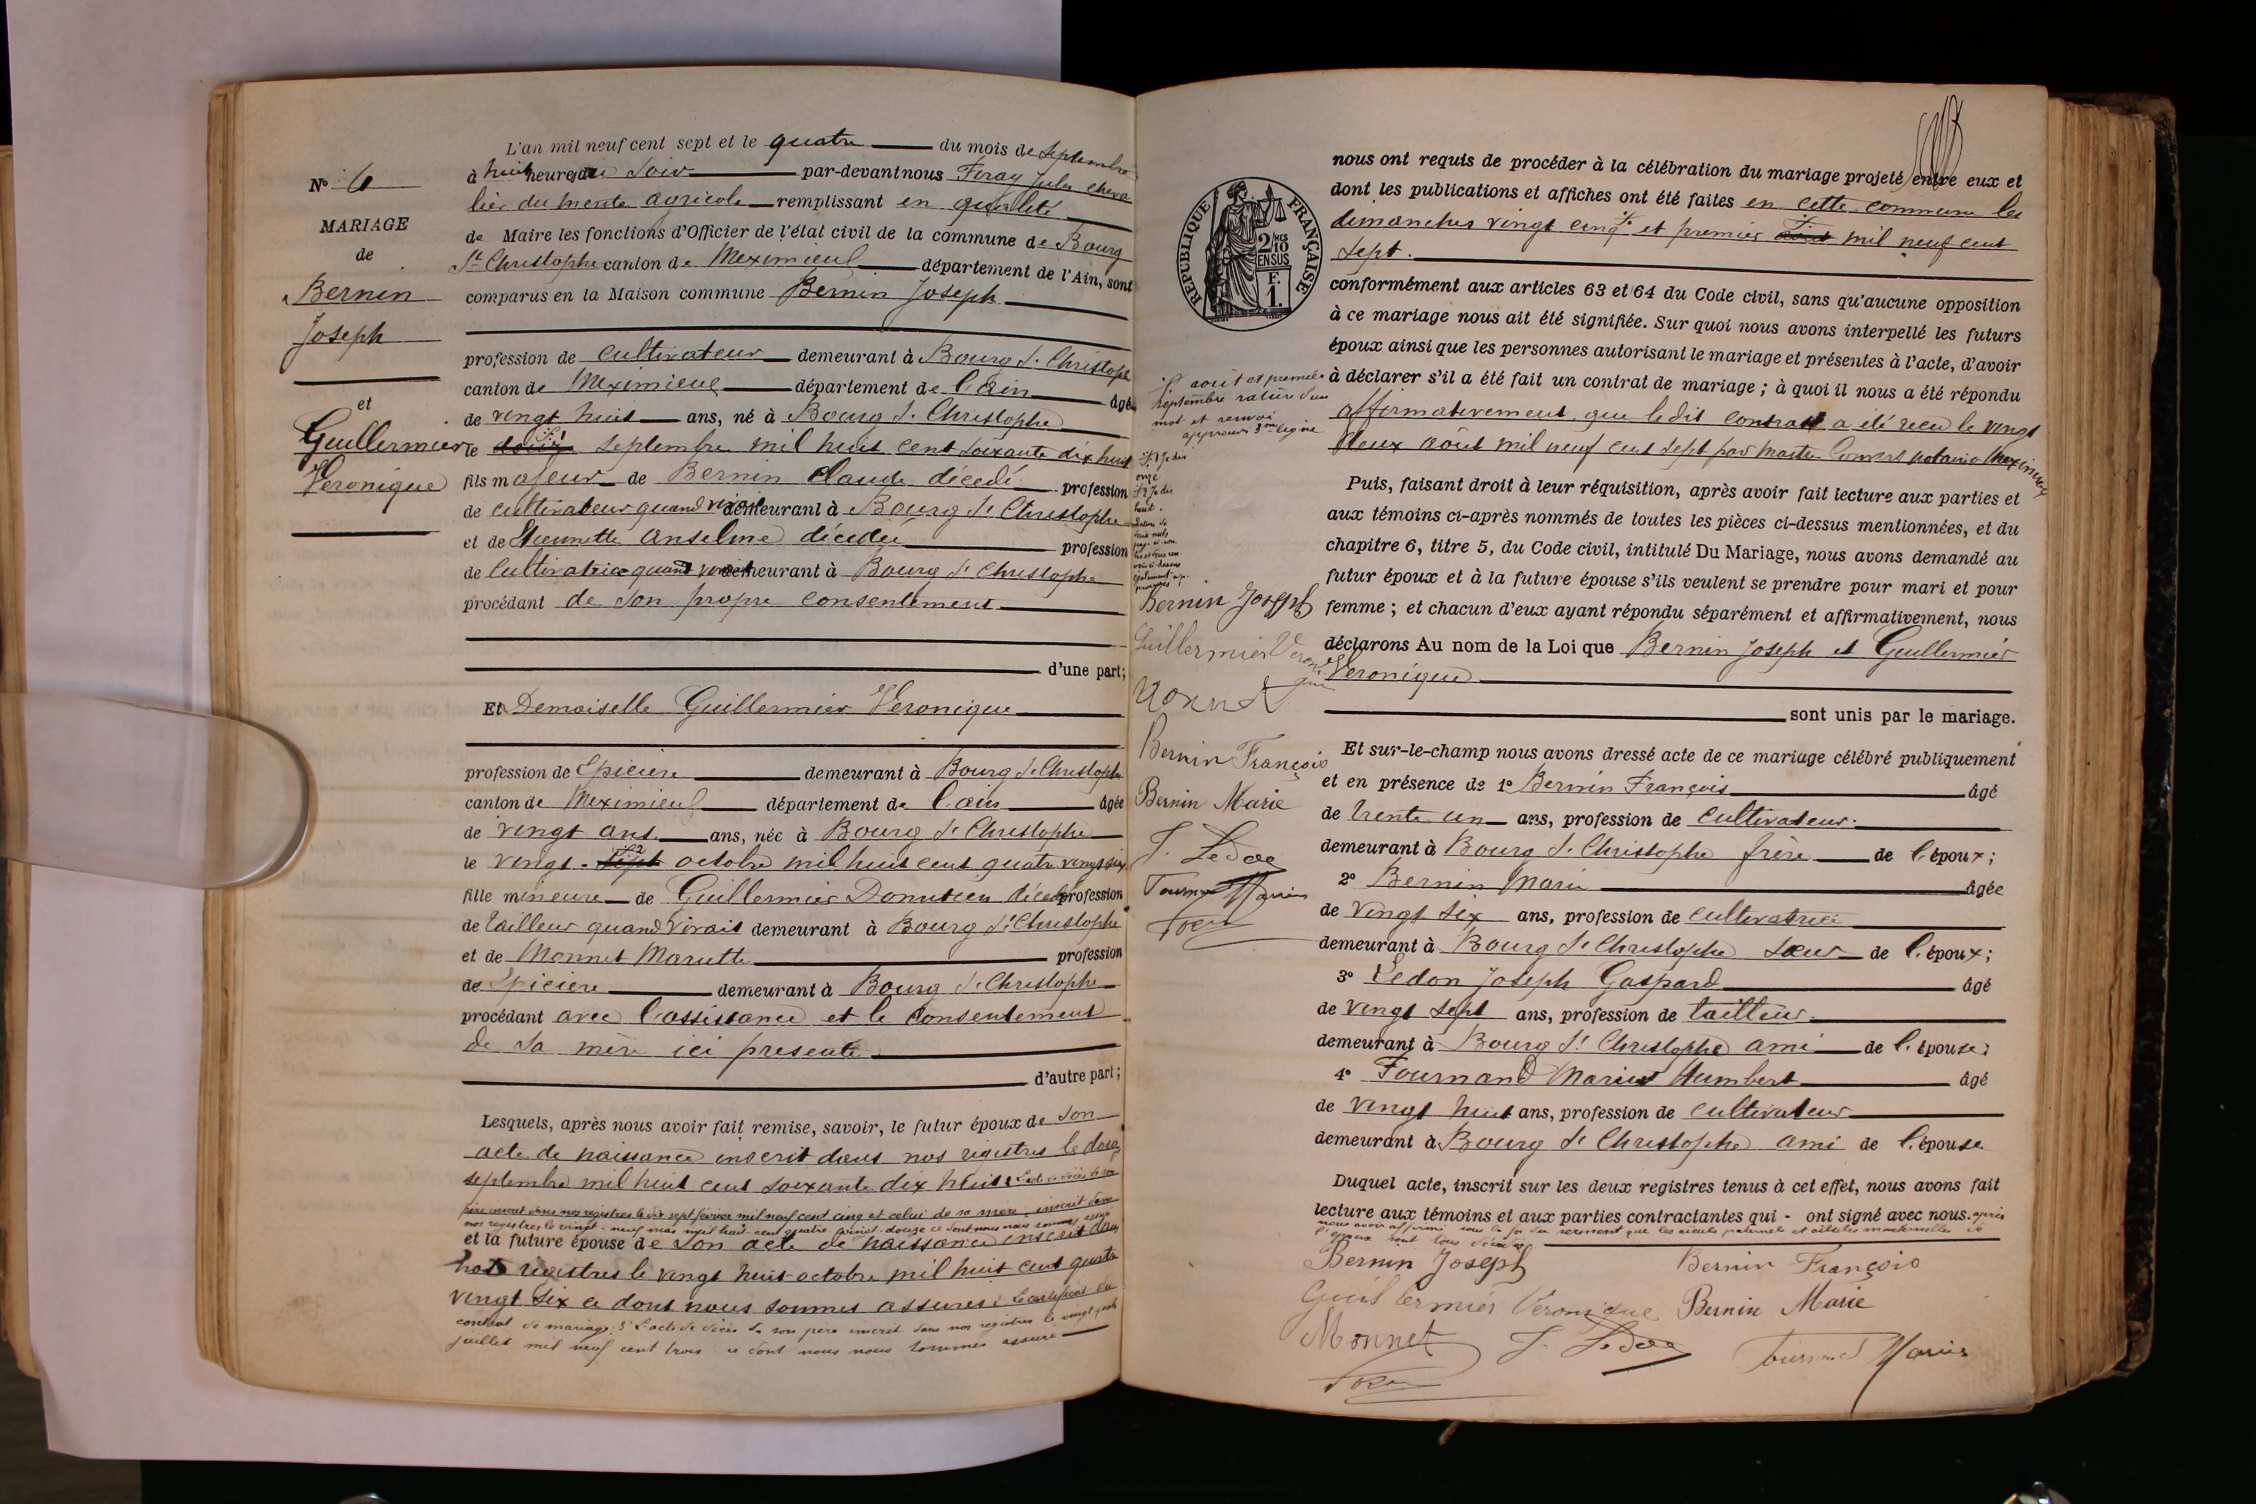 N° 6
MARIAGE
de
Bernin
Joseph
et
Guillermier
Véronique
L'an mil neuf cent sept et le quatre du mois de Septembre
à huit heures du Soir par-devant nous Feray Jules cheva
lier du merite agricole remplissant en qualité
de Maire les fonctions d'Officier de l'état civil de la commune de Bourg
St Christophe canton de Meximieux département de l'Ain, sont
comparus en la Maison commune Bernin Joseph
profession de cultivateur demeurant à Bourg St Christophe
canton de Meximieux département de l'Ain âgé
de vingt huit ans, né à Bourg St Christophe
le septembre mil huit cent soixante dix huit
fils majeur de Bernin Claude décédé profession
de cultivateur quand vivait demeurant à Bourg St Christophe
et de Anselme décédée profession
de cultivatrice quand vivait demeurant à Bourg St Christophe
procédant de son propre consentement
d'une part;
Et Demoiselle Guillermier Véronique
profession de Epicière demeurant à Bourg St Christophe
canton de Meximieux département de l'ain âgée
de vingt ans ans, née à Bourg St Christophe
le vingt-sept octobre mil huit cent quatre vingt six
fille mineure de Guillermier décédé profession
de tailleur quand vivait demeurant à Bourg St Christophe
et de Monnet Mariette profession
de Epicière demeurant à Bourg St Christophe
procédant avec l'assistance et le consentement
de sa mère ici présente
d'autre part;
Lesquels, après nous avoir fait remise, savoir, le futur époux de son
acte de naissance inscrit dans nos registres le douze
septembre mil huit cent soixante dix huit
père inscrit dans nos registres le sept février mil neuf cent cinq et celui de sa mère inscrit dans
nos registres le vingt-neuf mai mil huit cent quatre vingt-douze ce dont nous nous sommes assuré
et la future épouse de son acte de naissance inscrit dans
nos registres le vingt huit octobre mil huit cent quatre
vingt six ce dont nous sommes assurés. Le certificat du
contrat de mariage; 3° L'acte de décès de son père inscrit dans nos registres le vingt
juillet mil neuf cent trois ce dont nous nous sommes assuré
RÉPUBLIQUE FRANÇAISE
2/10
EN SUS
F.
1.
août et premier
septembre rature d'un
mot et renvoi
approuvé 3me ligne
Bernin Joseph
Guillermier Véronique
Bernin François
Bernin Marie
J. Ledon
Tournand Marius
nous ont requis de procéder à la célébration du mariage projeté entre eux et
dont les publications et affiches ont été faites en cette commune les
dimanches vingt cinq et premier mil neuf cent
sept.
conformément aux articles 63 et 64 du Code civil, sans qu'aucune opposition
à ce mariage nous ait été signifiée. Sur quoi nous avons interpellé les futurs
époux ainsi que les personnes autorisant le mariage et présentes à l'acte, d'avoir
à déclarer s'il a été fait un contrat de mariage; à quoi il nous a été répondu
affirmativement, que ledit contrat a été reçu le vingt
deux août mil neuf cent sept par maitre notaire Meximieux
Puis, faisant droit à leur réquisition, après avoir fait lecture aux parties et
aux témoins ci-après nommés de toutes les pièces ci-dessus mentionnées, et du
chapitre 6, titre 5, du Code civil, intitulé Du Mariage, nous avons demandé au
futur époux et à la future épouse s'ils veulent se prendre pour mari et pour
femme; et chacun d'eux ayant répondu séparément et affirmativement, nous
déclarons Au nom de la Loi que Bernin Joseph et Guillermier
Véronique
sont unis par le mariage.
Et sur-le-champ nous avons dressé acte de ce mariage célébré publiquement
et en présence de 1° Bernin François âgé
de trente un ans, profession de cultivateur
demeurant à Bourg St Christophe frère de l'époux;
2° Bernin Marie âgée
de vingt six ans, profession de cultivatrice
demeurant à Bourg St Christophe soeur de l'époux;
3° Ledon Joseph Gaspard âgé
de vingt sept ans, profession de tailleur
demeurant à Bourg St Christophe ami de l'épouse;
4° Tournand Marius Humbert âgé
de vingt huit ans, profession de cultivateur
demeurant à Bourg St Christophe ami de l'épouse
Duquel acte, inscrit sur les deux registres tenus à cet effet, nous avons fait
lecture aux témoins et aux parties contractantes qui - ont signé avec nous. après
nous avoir affirmé sous la foi du serment que les aïeuls paternels et maternelles de
l'époux sont tous décédés
Bernin Joseph Bernin François
Guillermier Véronique Bernin Marie
Monnet J. Ledon Tournand Marius